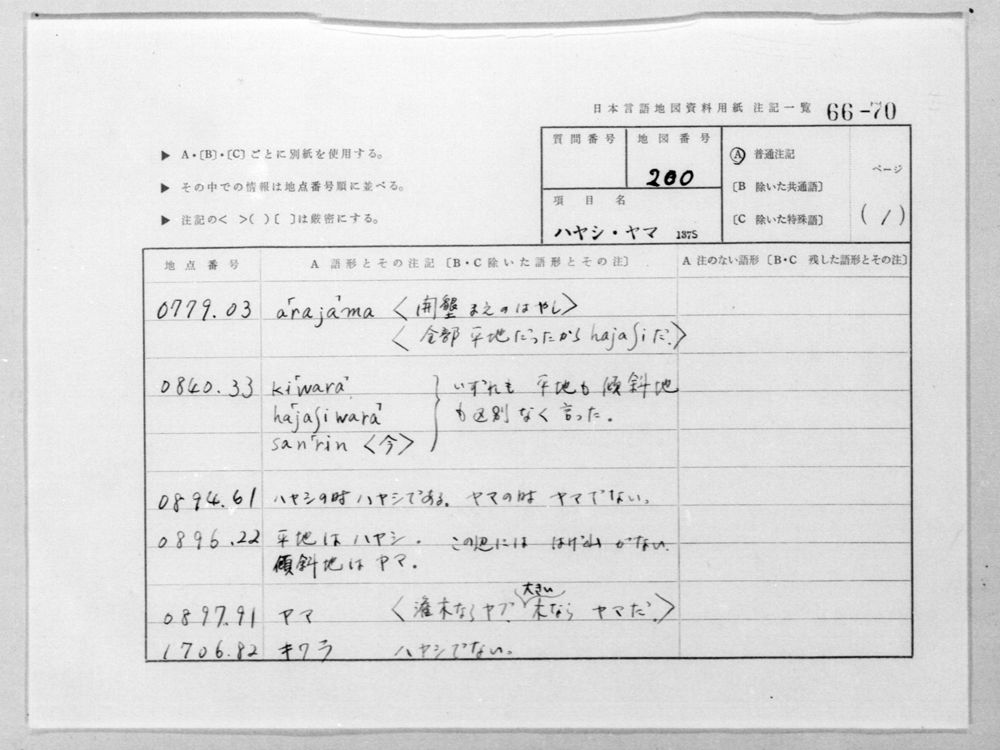 日本言語地図資料用紙 注記一覧 66-70
▶ A・〔B〕・〔C〕ごとに別紙を使用する。
▶ その中での情報は地点番号順に並べる。
▶ 注記の< >( )[ ]は厳密にする。
質問番号 地図番号
200
項目名
ハヤシ・ヤマ 137S
Ⓐ 普通注記
〔B 除いた共通語〕
〔C 除いた特殊語〕
ページ
(1)
地点番号 A 語形とその注記〔B・C除いた語形とその注〕 A 注のない語形〔B・C 残した語形とその注〕
0779.03 a｢raja｣ma 〈開墾まえのはやし〉
〈全部平地だったからhajaʃiだ。〉
0840.33 ki｢wara｣ いずれも 平地も傾斜地
ha｢jaʃiwara｣ も区別なく言った。
san｢rin 〈今〉
0894.61 ハヤシの時ハヤシである。ヤマの時ヤマでない。
0896.22 平地はハヤシ. この辺には はげ山がない.
傾斜地はヤマ.
0897.91 ヤマ 〈灌木ならヤブ、大きい木なら ヤマだ。〉
1706.82 キワラ ハヤシでない。